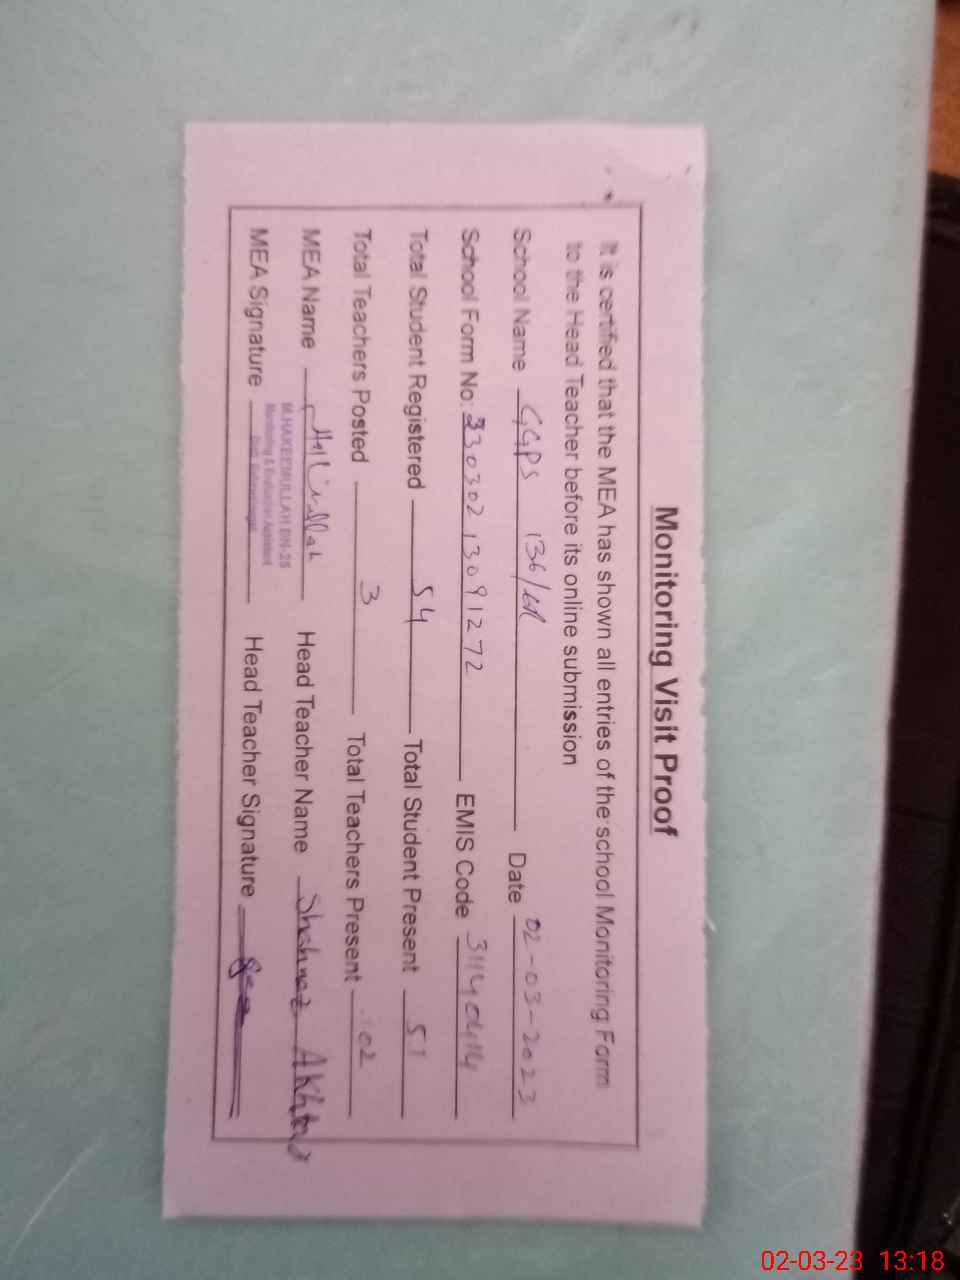 Monitoring Visit Proof
It is certified that the MEA has shown all entries of the school Monitoring Form
to the Head Teacher before its online submission
School Name GGPS 136/6R Date 02-03-2023
School Form No: 23030213091272 EMIS Code 31140414
Total Student Registered 54 Total Student Present 51
Total Teachers Posted 3 Total Teachers Present 02
MEA Name Head Teacher Name Shahnaz Akhtar
M.HAKEEMULLAH BN-25
MEA Signature Head Teacher Signature
Monitoring & Evaluation Assistant
02-03-23 13:18